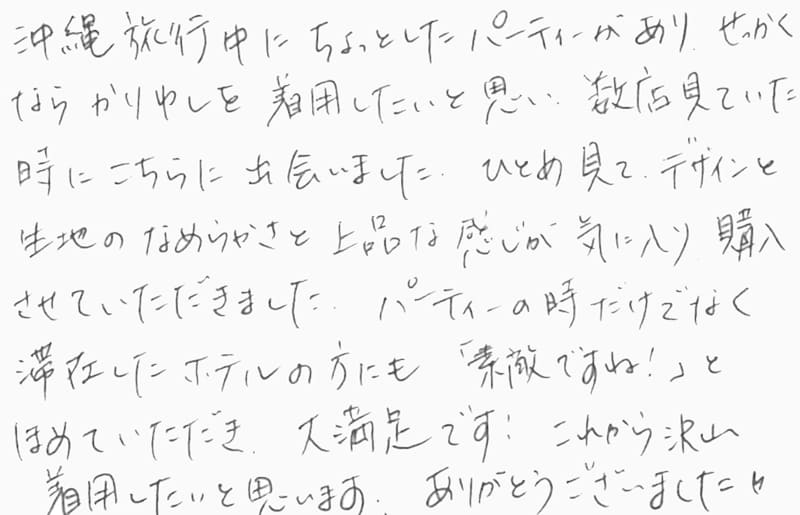 沖縄旅行中にちょっとしたパーティーがあり、せっかく
ならかりゆしを着用したいと思い、数店見ていた
時にこちらに出会いました。ひとめ見て、デザインと
生地のなめらかさと上品な感じが気に入り、購入
させていただきました。パーティーの時だけでなく
滞在したホテルの方にも「素敵ですね!」と
ほめていただき、大満足です! これから沢山
着用したいと思います。ありがとうございました〃